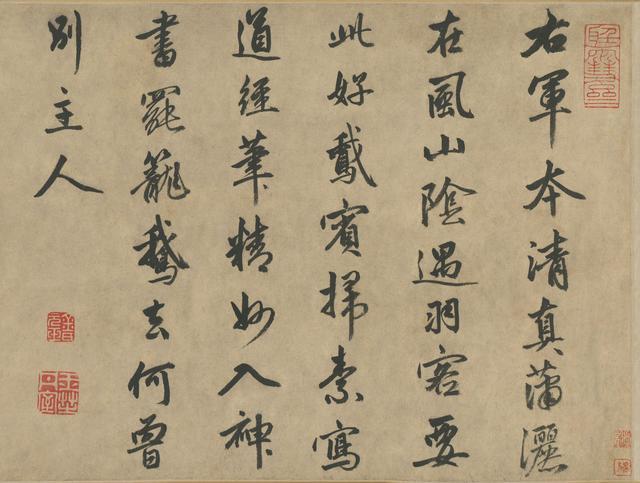 右軍本清真蕭灑
在風山陰遇羽客要
此好鵞賓掃素寫
道經筆精妙入神
書罷籠鵞去何曾
別主人